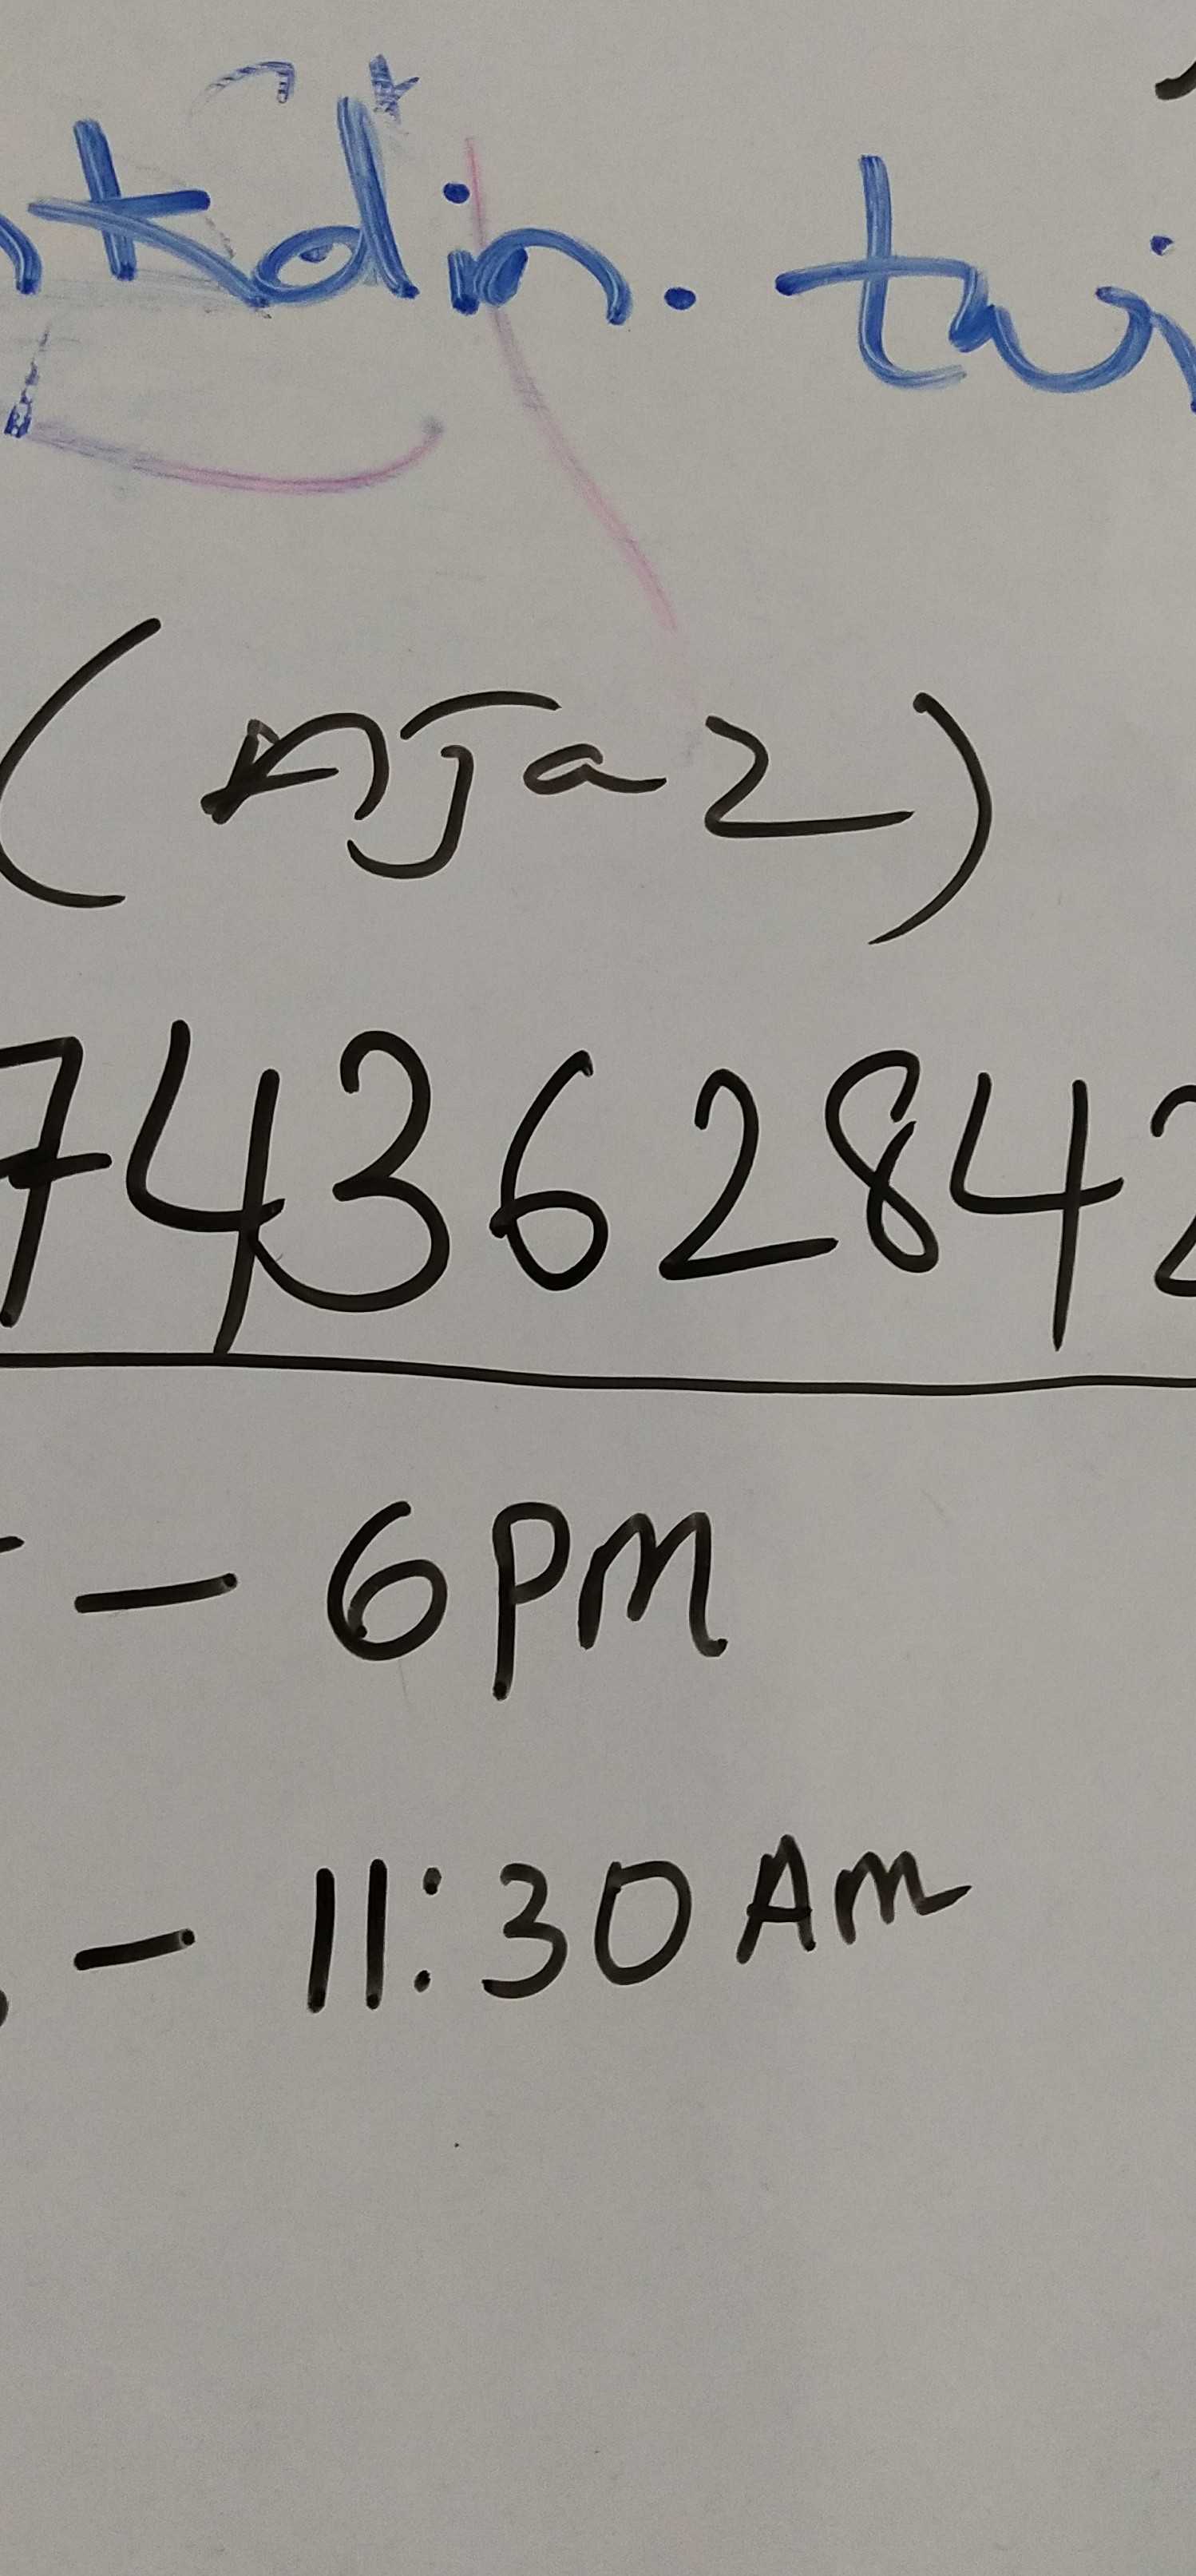 nkdin. twi
(Ajaz)
74362842
- 6 PM
- 11:30 Am